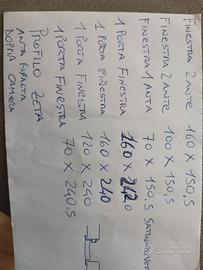 FINESTRA 2 ANTE 160 X 150,5
FINESTRA 2 ANTE 100 X 150,5
FINESTRA 1 ANTA 70 X 150,5 SATINATO
1 PORTA FINESTRA 160 X 242,0
1 PORTA FINESTRA 160 X 240
1 PORTA FINESTRA 120 X 240
1 PORTA FINESTRA 70 X 240,5
PROFILO ZETA
ANTA RIBALTA
DOPPIA CAMERA
Subito